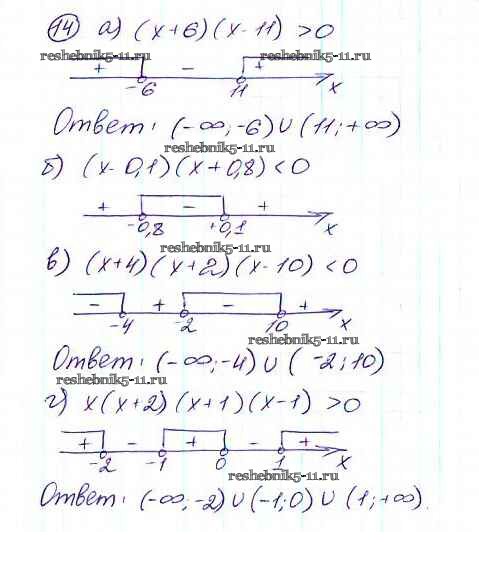 14 а) (x+6)(x-11) >0
reshebnik5-11.ru
+ - +
-6 11 x
Ответ: (-∞;-6)∪(11;+∞)
reshebnik5-11.ru
б) (x-0,1)(x+0,8)<0
+ - +
-0,8 +0,1 x
reshebnik5-11.ru
в) (x+4)(x+2)(x-10) <0
- + - +
-4 -2 10 x
reshebnik5-11.ru
Ответ: (-∞;-4)∪(-2;10)
reshebnik5-11.ru
г) x(x+2)(x+1)(x-1) >0
+ - + - +
-2 -1 0 1 x
reshebnik5-11.ru
Ответ: (-∞;-2)∪(-1;0)∪(1;+∞).